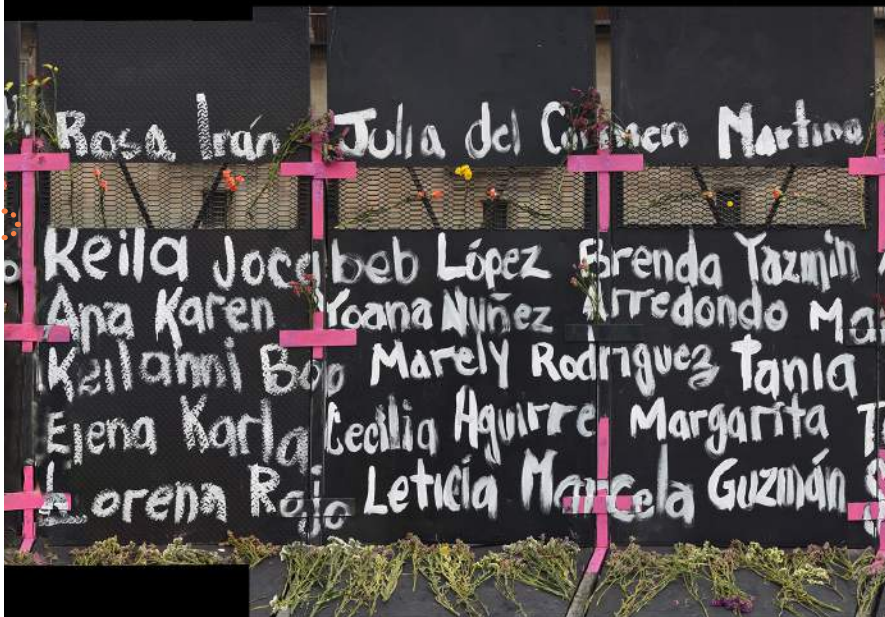 Rosa Irán Julia del Carmen Martina
Keila Jocabeb López Brenda Yazmin
Ana Karen Yoana Nuñez Arredondo
Keilanni Boo Marely Rodríguez Tania
Elena Karla Cecilia Aguirre Margarita
Lorena Rojo Leticia Marcela Guzmán